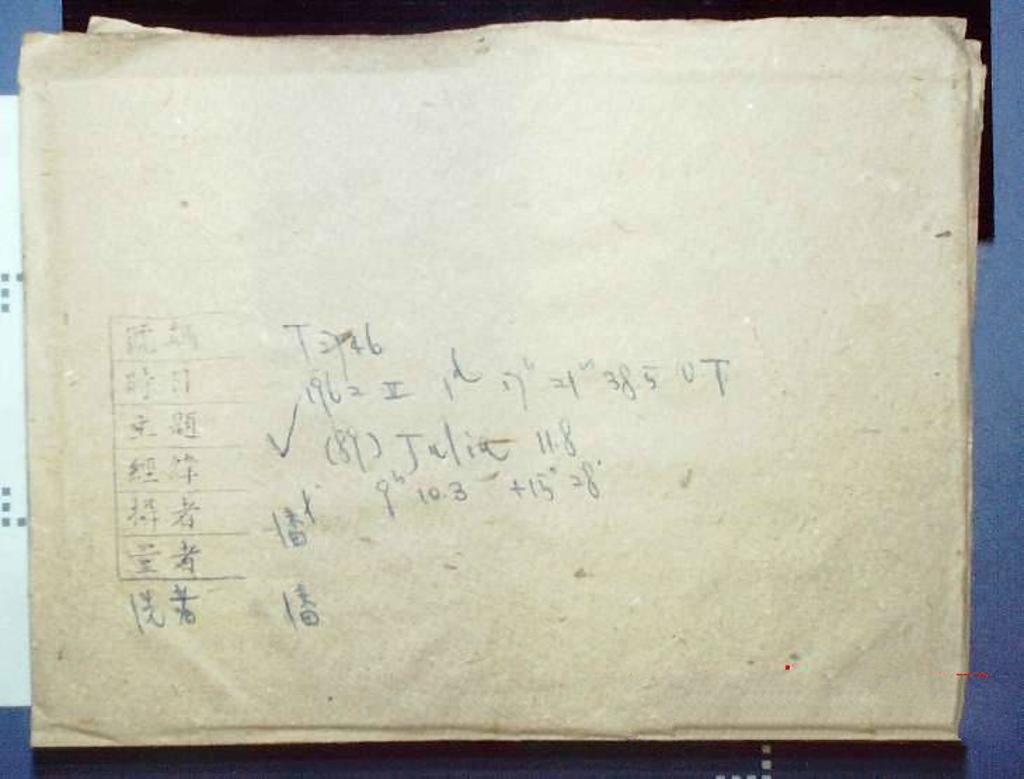 號碼 T2746
時日 1962 II 1d 17h 21m 38.5 UT
主題 ✓ (89) Julia 11.8
經緯 9h 10.3 +15° 28'
攝者 潘
量者
洗者 潘